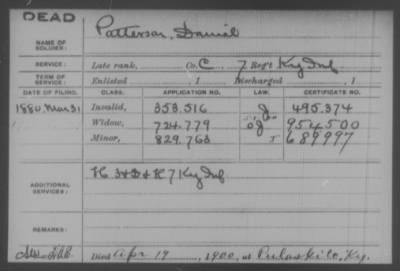 DEAD
NAME OF SOLDIER: Patterson, Daniel
SERVICE: Late rank, Co. C, 7 Reg't Ky Inf
TERM OF SERVICE: Enlisted , 1 Discharged , 1
DATE OF FILING. CLASS. APPLICATION NO. LAW. CERTIFICATE NO.
1880 Mar 31 Invalid, 353.516 J 495.374
Widow, 724.779 954500
Minor, 829.763 689997
ADDITIONAL SERVICES: K 7 Ky Inf
REMARKS:
Died Apr 19, 1900, at Pulaski Co, Ky.